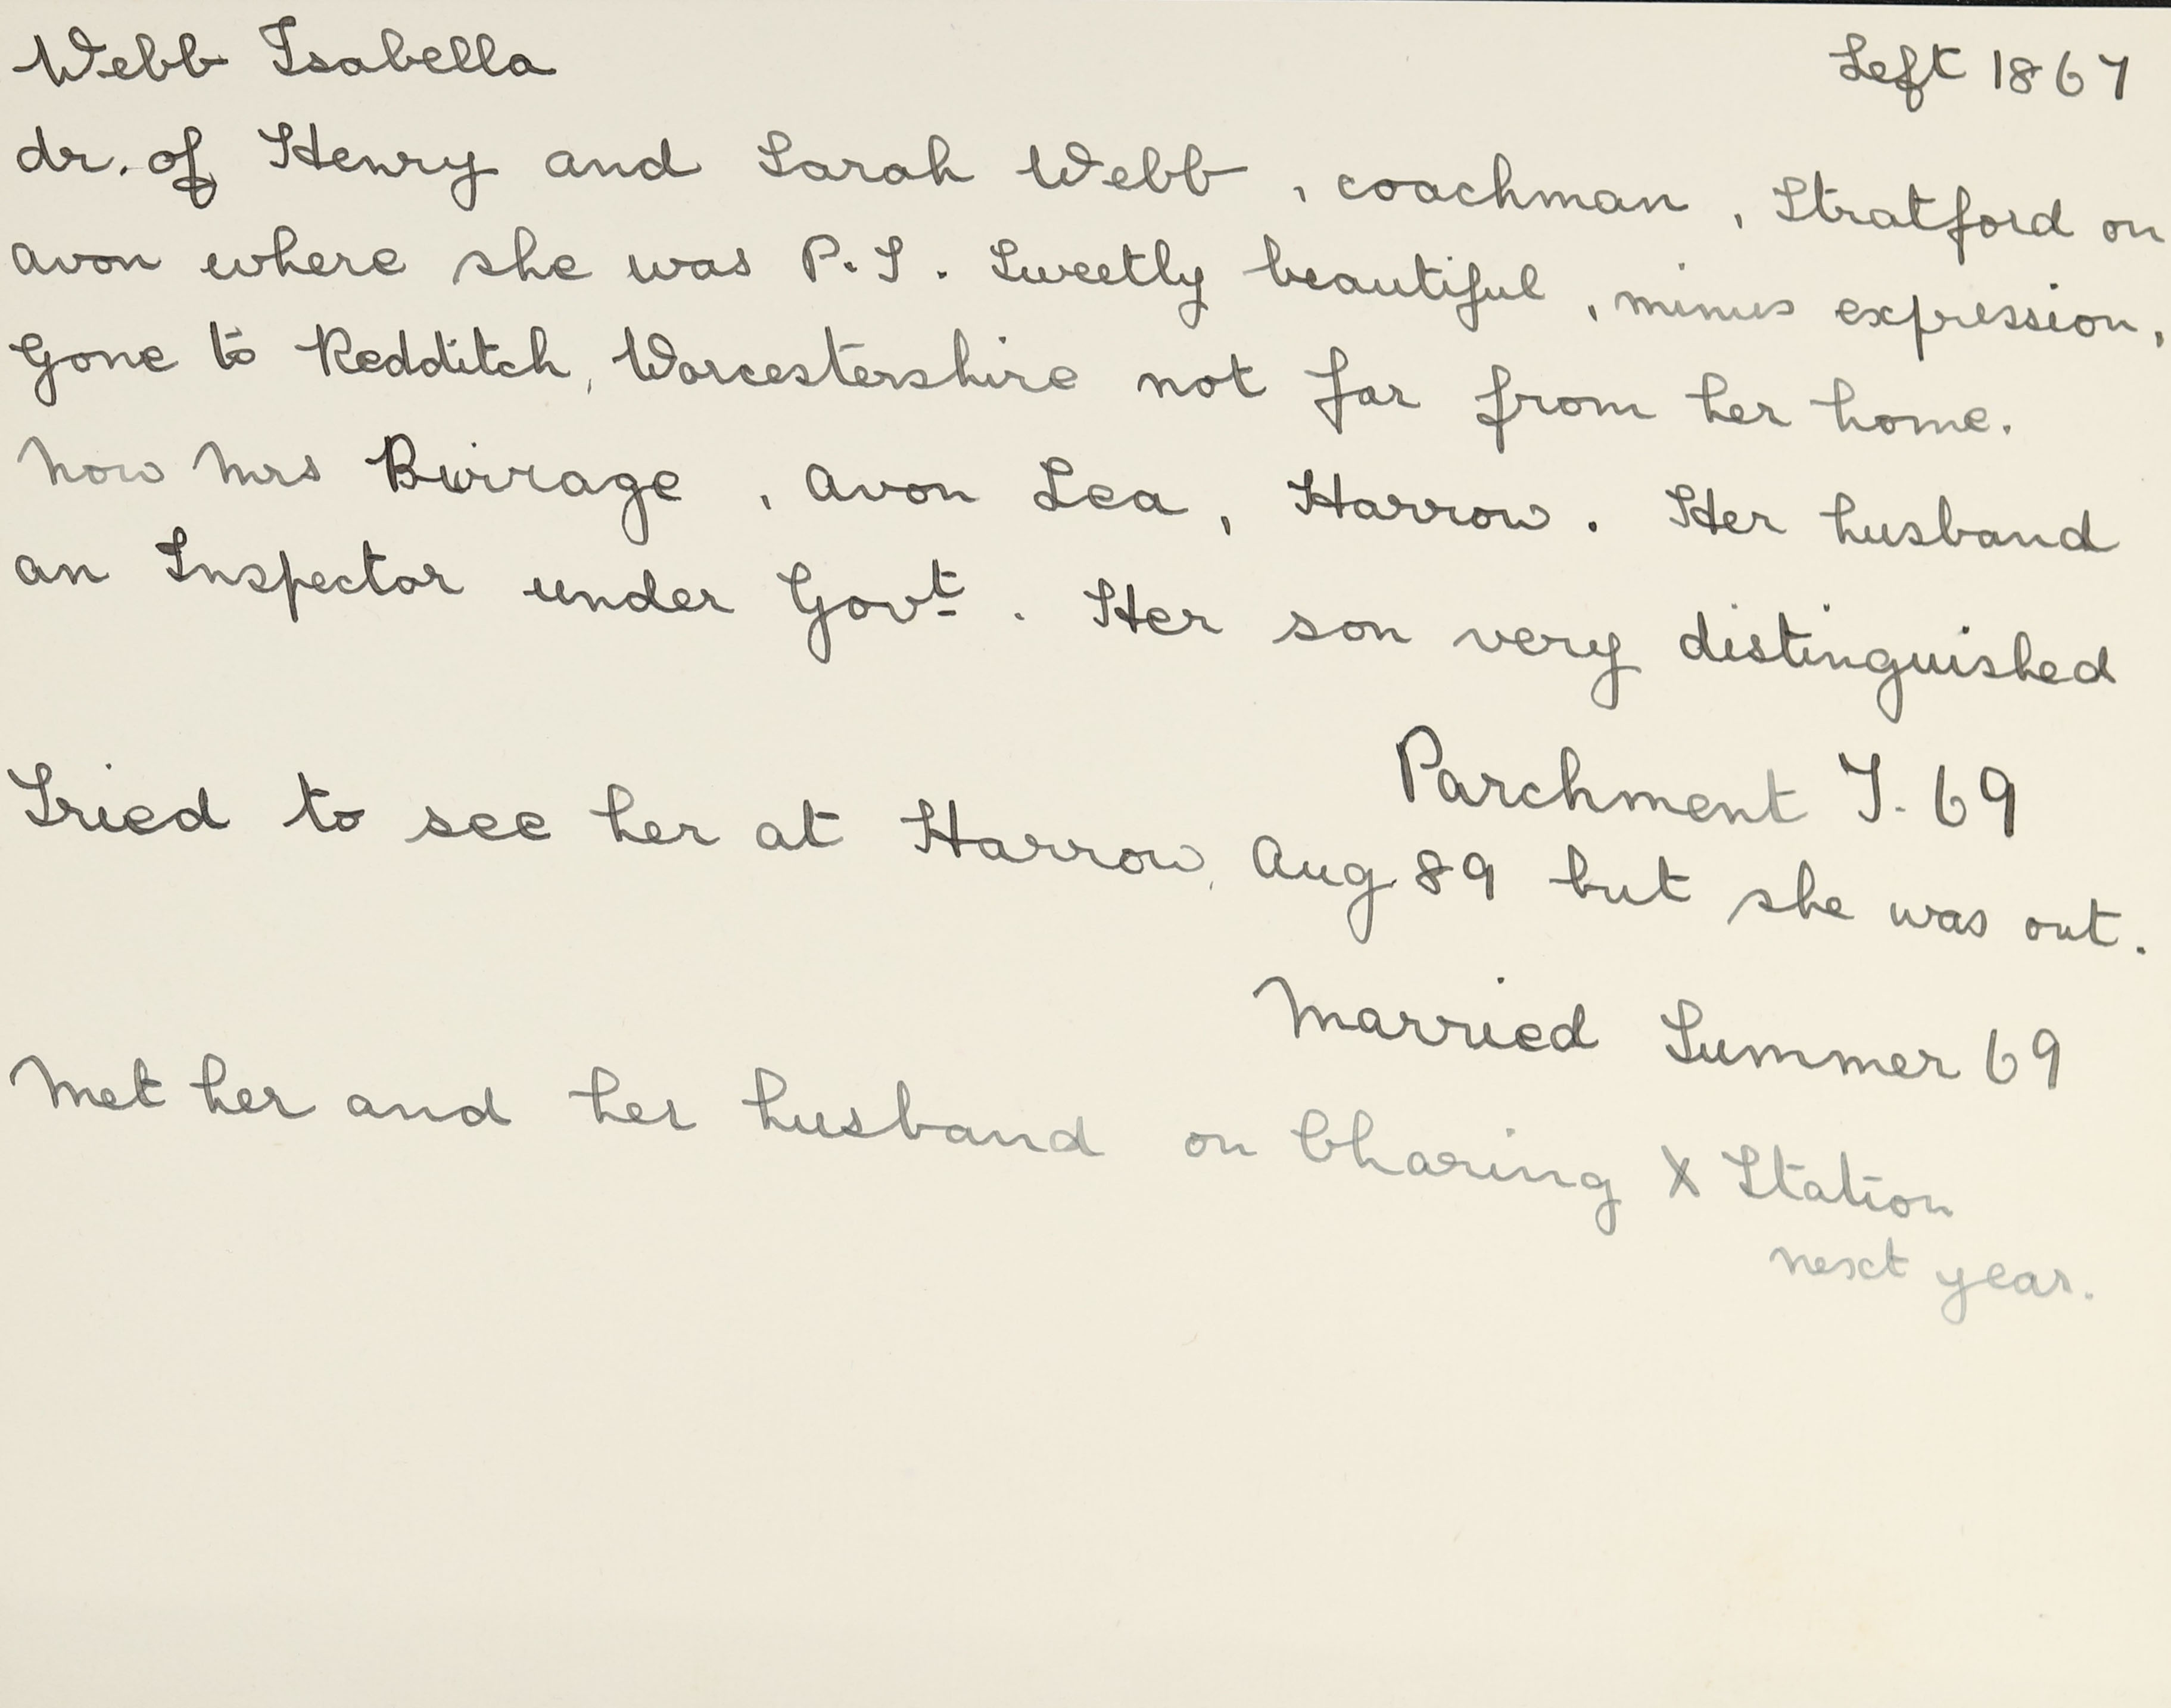 Webb Isabella Left 1867
dr. of Henry and Sarah Webb, coachman, Stratford on
Avon where she was P.T. Sweetly beautiful, minus expression,
Gone to Redditch, Worcestershire not far from her home.
Now Mrs Burrage, Avon Lea, Harrow. Her husband
an Inspector under Govt. Her son very distinguished
Parchment J. 69
Tried to see her at Harrow, Aug 89 but she was out.
Married Summer 69
Met her and her husband on Charing X Station
next year.